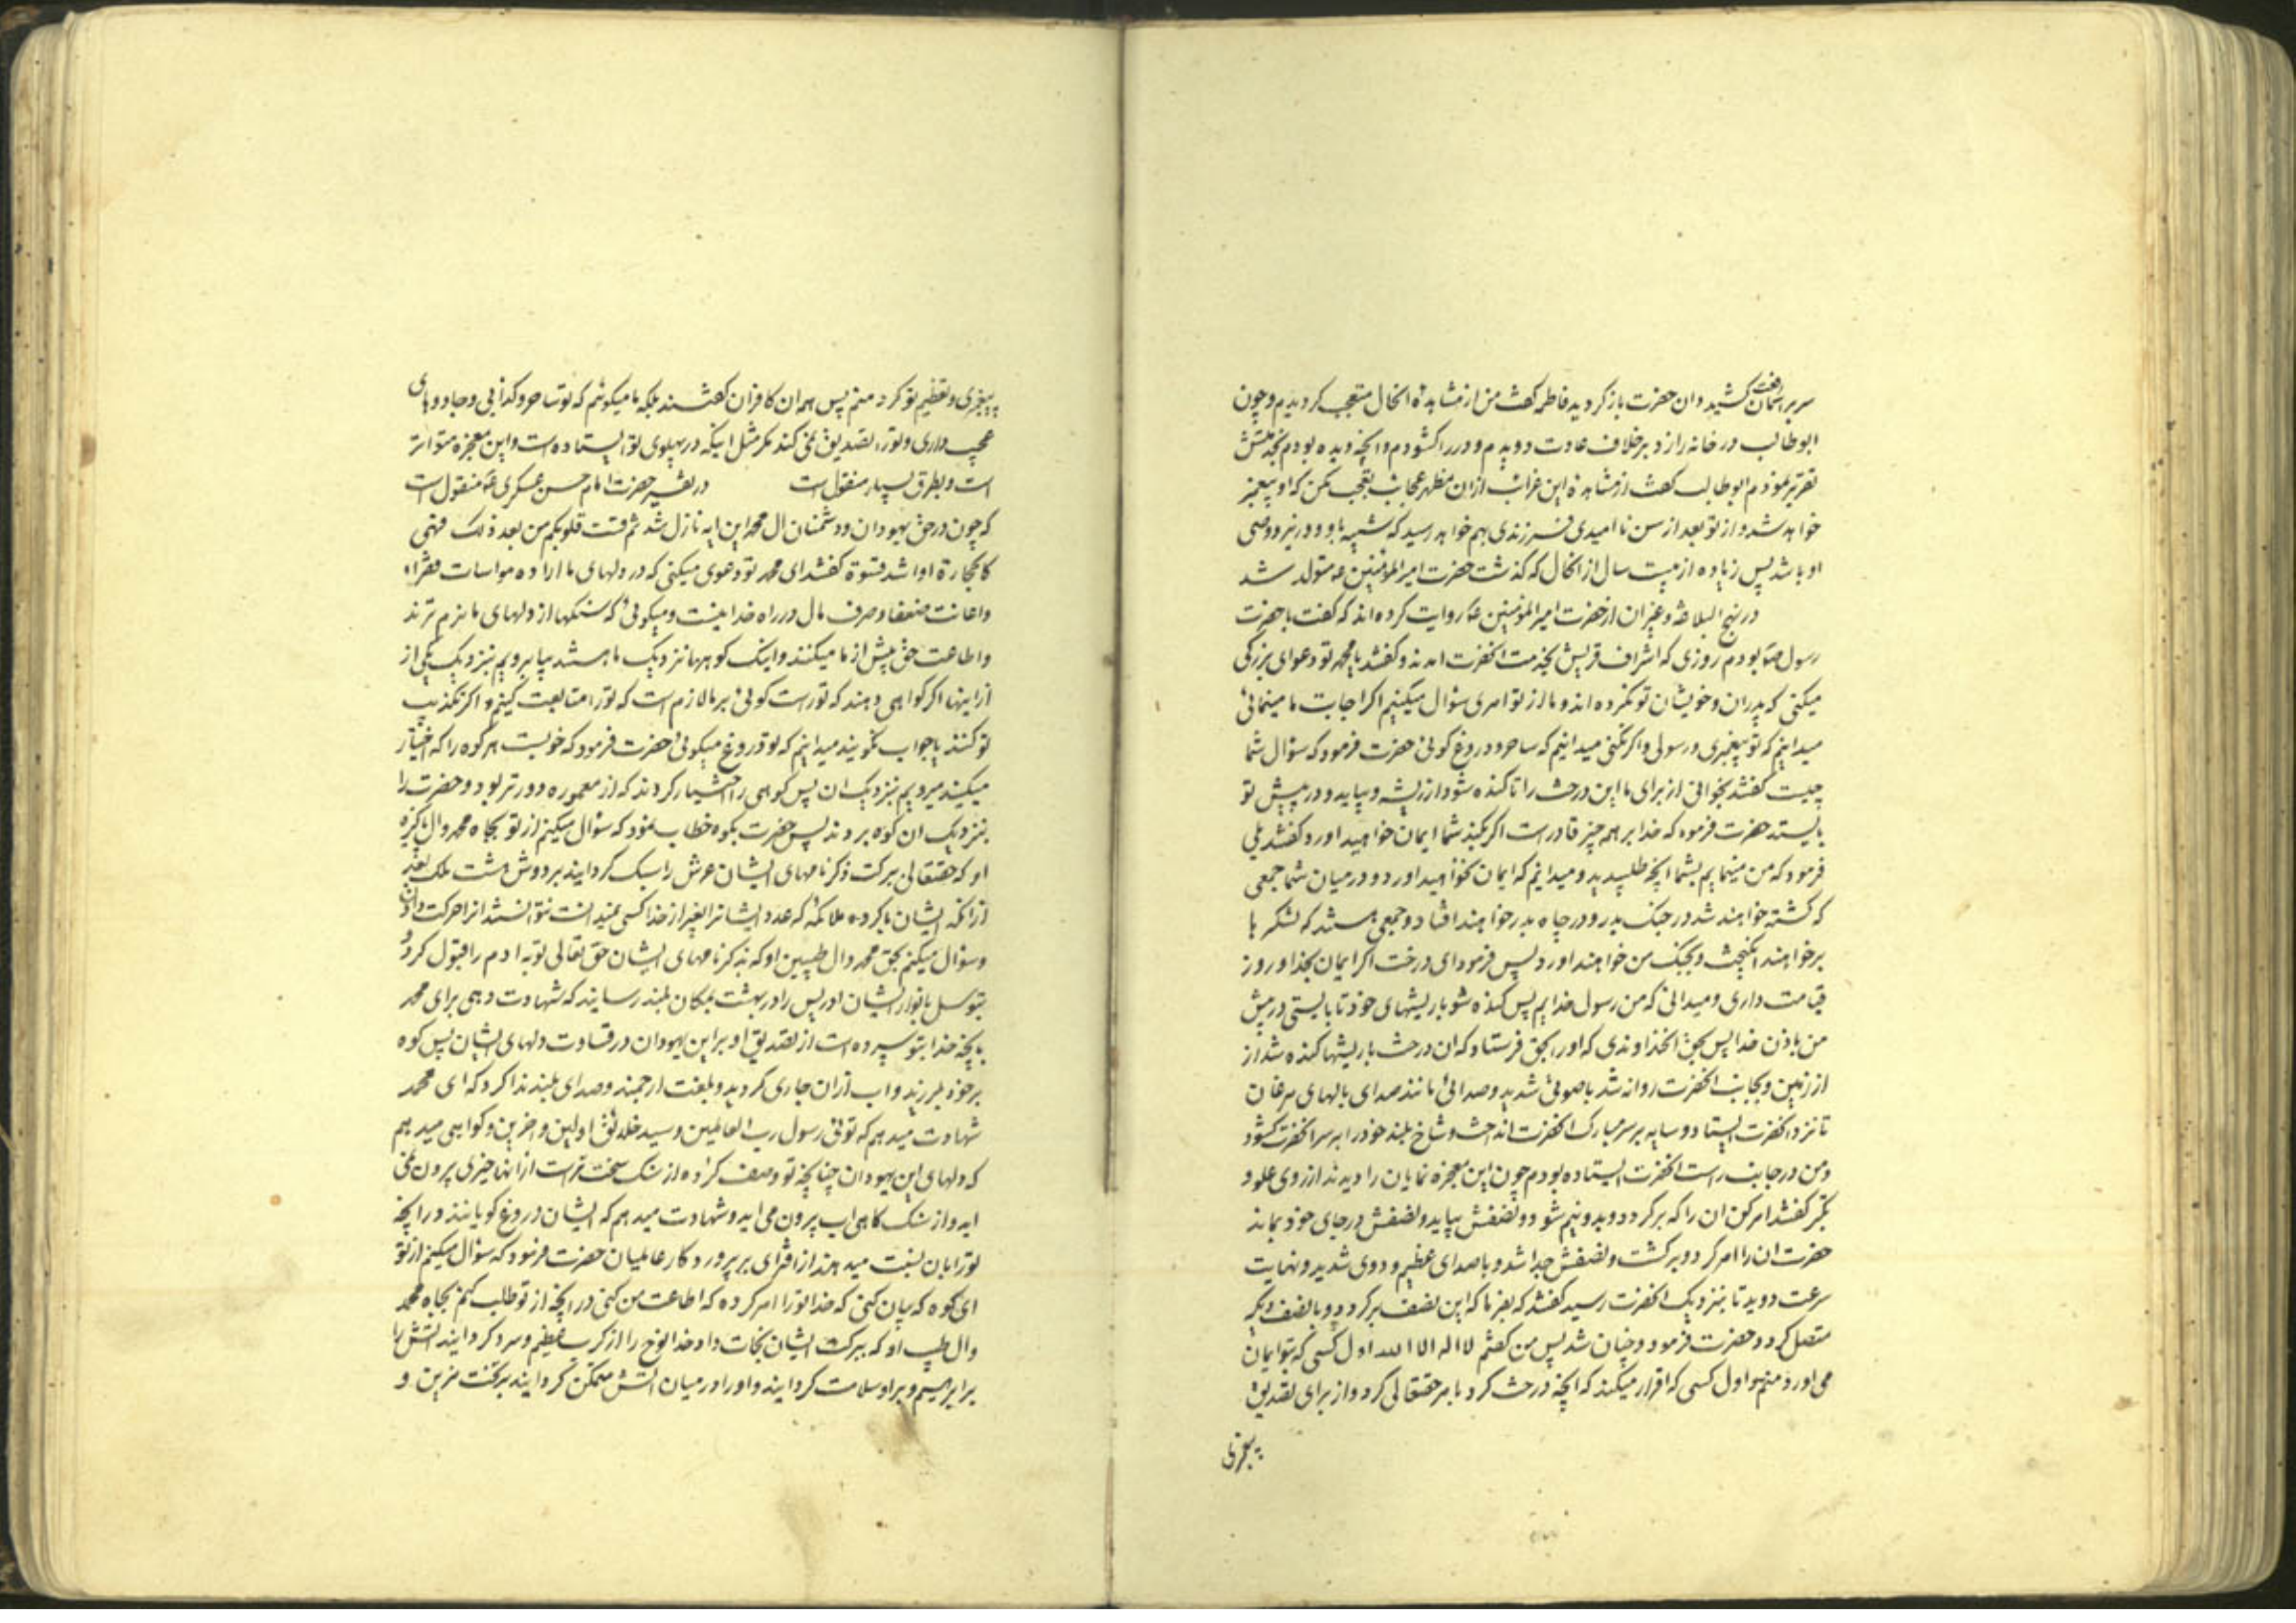 سر بر آسمان کشید و ان حضرت باز گردید فاطمه گفت من از مشاهده انحال متعجب گردیدم و چون
رفعت
ابوطالب در خانه را زد بر خلاف عادت دویدم و در را کشودم و انچه دیده بودم بخدمتش
تقریر نمودم ابوطالب گفت از مشاهده این غرائب از ان مظهر عجائب تعجب مکن که او پیغمبر
خواهد شد و از تو بعد از سن نا امیدی فرزندی بهم خواهد رسید که شبیه باو و وزیر و وصی
او باشد پس زیاده از بیست سال از انحال که گذشت حضرت امیر المؤمنین ع متولد شد
در نهج البلاغه و غیر ان از حضرت امیر المؤمنین ع روایت کرده اند که گفت با حضرت
رسول ص بودم روزی که اشراف قریش بخدمت انحضرت امدند و گفتند یا محمد تو دعوای بزرگی
میکنی که پدران و خویشان تو نکرده اند و ما از تو امری سؤال میکنیم اگر اجابت ما مینمائی
میدانیم که تو پیغمبری و رسولی و اگر نکنی میدانیم که ساحر و دروغ کوئی حضرت فرمود که سؤال شما
چیست گفتند بخوانی از برای ما این درخت را تا کنده شود از ریشه و بیاید و در پیش تو
بایستد حضرت فرمود که خدا بر همه چیز قادر است اگر بکند شما ایمان خواهید اورد گفتند بلی
فرمود که من مینمایم بشما انچه طلبیدید و میدانم که ایمان نخواهید اورد و در میان شما جمعی
که کشته خواهند شد در جنک بدر و در چاه بدر خواهند افتاد و جمعی هستند که لشکر ها
بر خواهند انگیخت و بجنگ من خواهند اورد پس فرمود ای درخت اگر ایمان بخدا و روز
قیامت داری و میدانی که من رسول خدایم پس کنده شو با ریشهای خود تا بایستی در پیش
من باذن خدا پس بحق انخداوندی که او را بحق فرستاد که ان درخت با ریشها کنده شد از
از زمین و بجانب انحضرت روانه شد با صوتی شدید و صدائی مانند صدای بالهای مرغان
تا نزد انحضرت ایستاد و سایه بر سر مبارک انحضرت انداخت و شاخ بلند خود را بر سر انحضرت کشود
و من در جانب راست انحضرت ایستاده بودم چون این معجزه نمایان را دیدند از روی علو و
تکبر گفتند امر کن ان را که بر گردد و بدو نیم شود و نصفش بیاید و نصفش در جای خود بماند
حضرت ان را امر کرد و بر گشت و نصفش جدا شد و با صدای عظیم و دوی شدید و نهایت
سرعت دوید تا بنزدیک انحضرت رسید گفتند که بفرما که این نصف برگردد و با نصف دیگر
متصل گردد حضرت فرمود و چنان شد پس من گفتم لا اله الا الله اول کسی که بتو ایمان
می اورد منم و اول کسی که اقرار میکند که انچه درخت کرد بامر حقتعالی کرد و از برای تصدیق
پیغمبری
پیغمبری و تعظیم تو کرد منم پس همه ان کافران گفتند بلکه ما میگوئیم که تو ساحر و کذابی و جادوهای
عجیب داری و تو را تصدیق نمی کند مگر مثل اینکه در پهلوی تو ایستاده است و این معجزه متواتر
است و بطرق بسیار منقول است در تفسیر حضرت امام حسن عسکری ع منقول است
که چون در حق یهودان و دشمنان ال محمد این ایه نازل شد ثم قست قلوبکم من بعد ذلک فهی
کالحجارة او اشد قسوة گفتند ای محمد تو دعوی میکنی که در دلهای ما اراده مواسات فقراء
و اعانت ضعفا و صرف مال در راه خدا نیست و میگوئی که سنکها از دلهای ما نرم ترند
و اطاعت حق بیش از ما میکنند و اینک کوهها نزدیک ما هستند بیا برویم بنزدیک یکی از
از اینها اگر گواهی دهند که تو راست گوئی بر ما لازم است که تو را متابعت کنیم و اگر تکذیب
تو کنند یا جواب نگویند میدانیم که تو دروغ میگوئی حضرت فرمود که خوبست هر کوه را که اختیار
میکنید میرویم بنزدیک ان پس کوهی را اختیار کردند که از معموره دورتر بود و حضرت را
بنزدیک ان کوه بردند پس حضرت بکوه خطاب نمود که سؤال میکنم از تو بجاه محمد و ال پاکیزه
او که حقتعالی ببرکت ذکر نامهای ایشان عرش را سبک گردانید بر دوش هشت ملک بعد
از انکه ایشان با گروه ملائکه که عدد ایشانرا بغیر از خدا کسی نمیدانست نتوانستند انرا حرکت داد
و سؤال میکنم بحق محمد و ال طیبین او که بذکر نامهای ایشان حق تعالی توبه ادم را قبول کرد و
بتوسل بانوار ایشان ادریس را در بهشت بمکان بلند رسانید که شهادت دهی برای محمد
بانچه خدا بتو سپرده است از تصدیق او بر این یهودان در قساوت دلهای ایشان پس کوه
بر خود لرزید و اب از ان جاری گردید و بلغت ارجمند و صدای بلند ندا کرد که ای محمد
شهادت میدهم که توئی رسول رب العالمین و سید خلائق اولین و اخرین و گواهی میدهم
که دلهای این یهودان چنانچه تو وصف کرده از سنک سخت تر است از انها چیزی بیرون نمی
اید و از سنک گاهی اب بیرون می اید و شهادت میدهم که ایشان دروغ گویانند در انچه
تو را بان نسبت میدهند از افترای بر پروردگار عالمیان حضرت فرمود که سؤال میکنم از تو
ای کوه که بیان کنی که خدا تو را امر کرده که اطاعت من کنی در انچه از تو طلب کنم بجاه محمد
و ال طیب او که ببرکت ایشان نجات داد خدا نوح را از کرب عظیم و سرد گردانید اتش را
بر ابراهیم و بر او سلامت گردانید و او را در میان اتش متمکن گردانید بر تخت مزین و